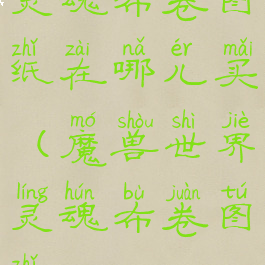 灵魂布卷图
zhǐ zài nǎ ér mǎi
纸在哪儿买
mó shòu shì jiè
（魔兽世界
líng hún bù juàn tú
灵魂布卷图
zhǐ